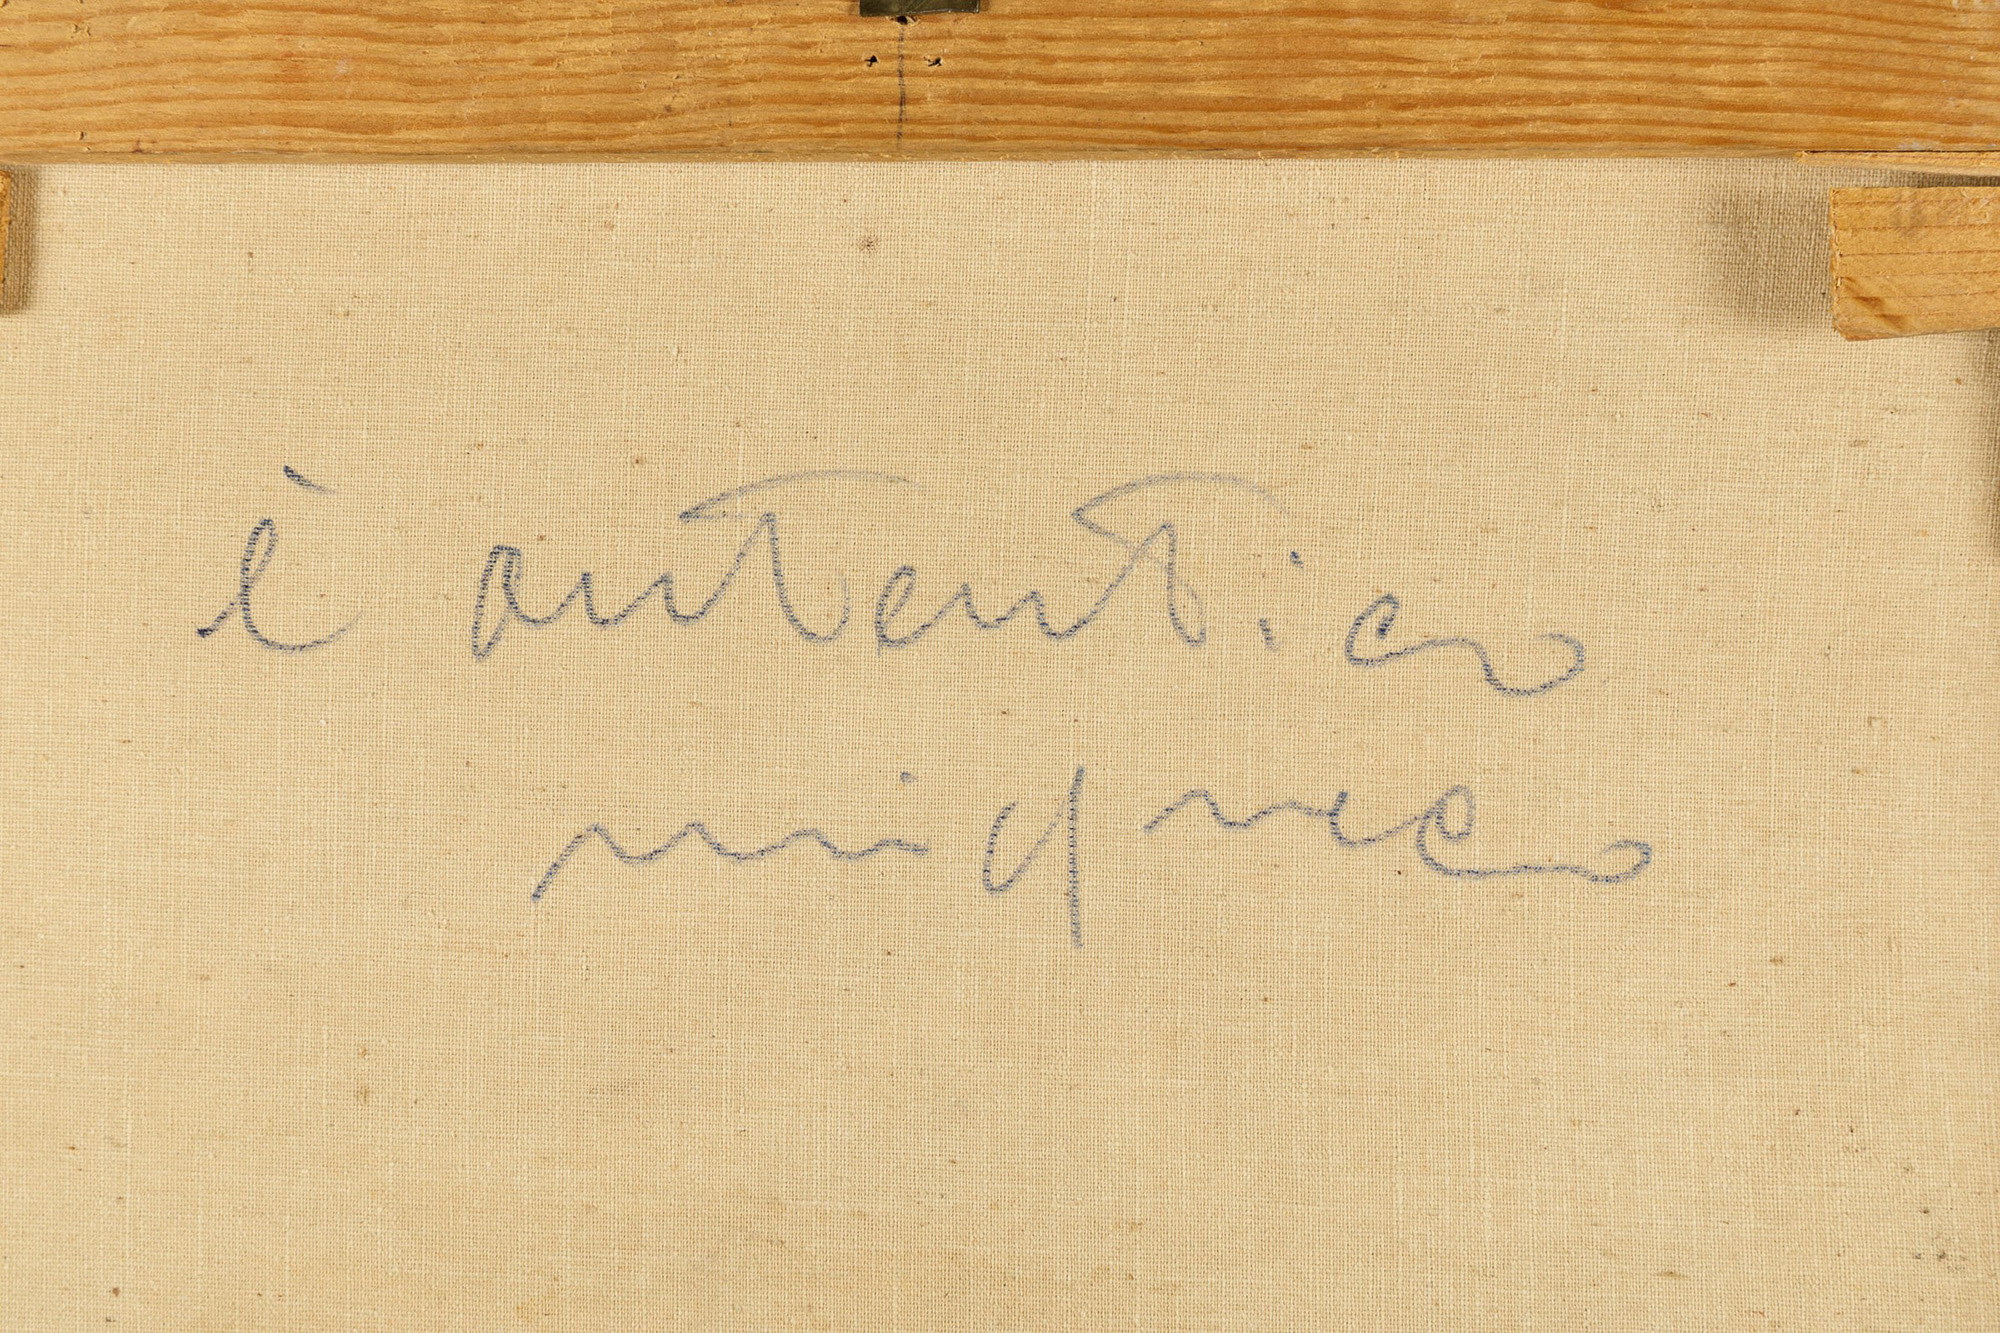 è autentico
migneco